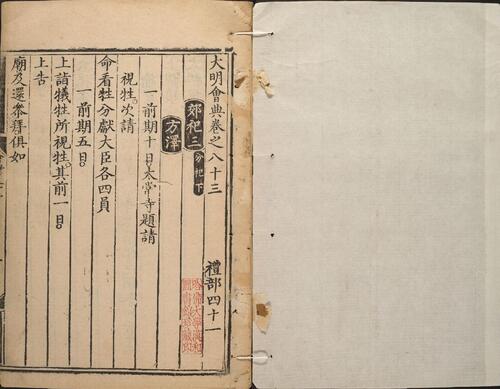 大明會典卷之八十三
禮部四十一
郊祀三 分祀下
方澤
一前期十日太常寺題請
視牲次請
命看牲分獻大臣各四員
一前期五日
上詣犧牲所視牲其前一日
上告
廟及還參拜俱如